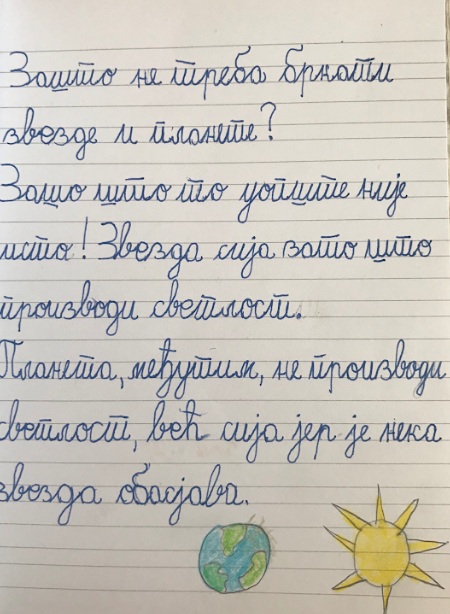 Зашто не треба бркати
звезде и планете?
Зашо што то уопште није
исто! Звезда сија зато што
производи светлост.
Планета, међутим, не производи
светлост, већ сија јер је нека
звезда обасјава.